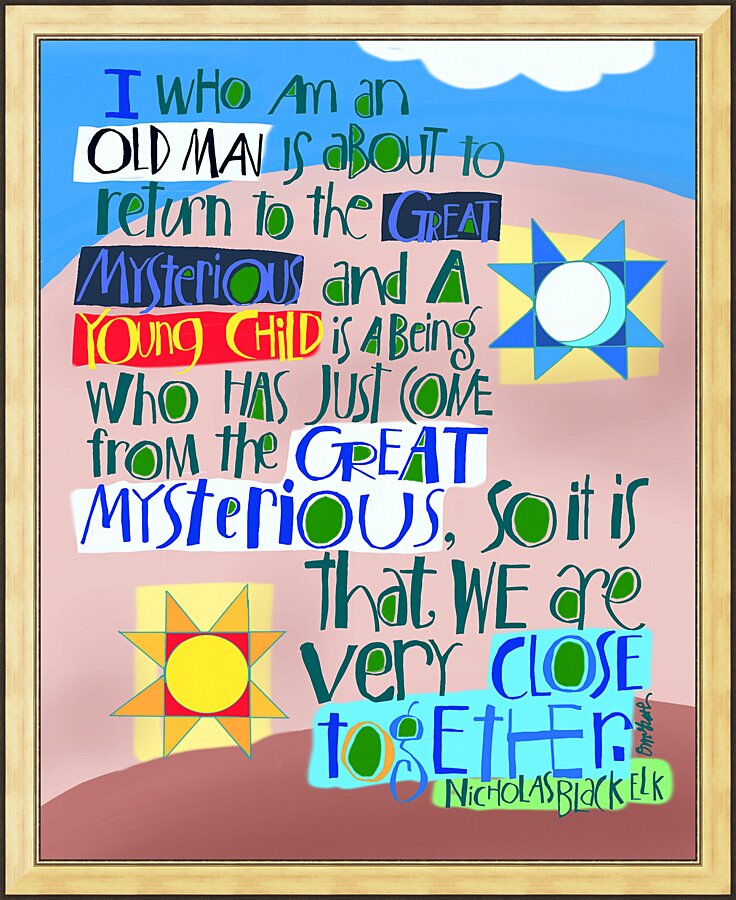 I WHO Am an
OLD MAN is aBOUT to
return to the GREAT
MYSteriOUS and A
YOUNG CHiLD is A Being
WHO HAS JUST COME
from the GREAT
MYSteriOUS, so it is
that WE are
very CLOSE
togETHEr.
NicHOLAS BLACK ELK